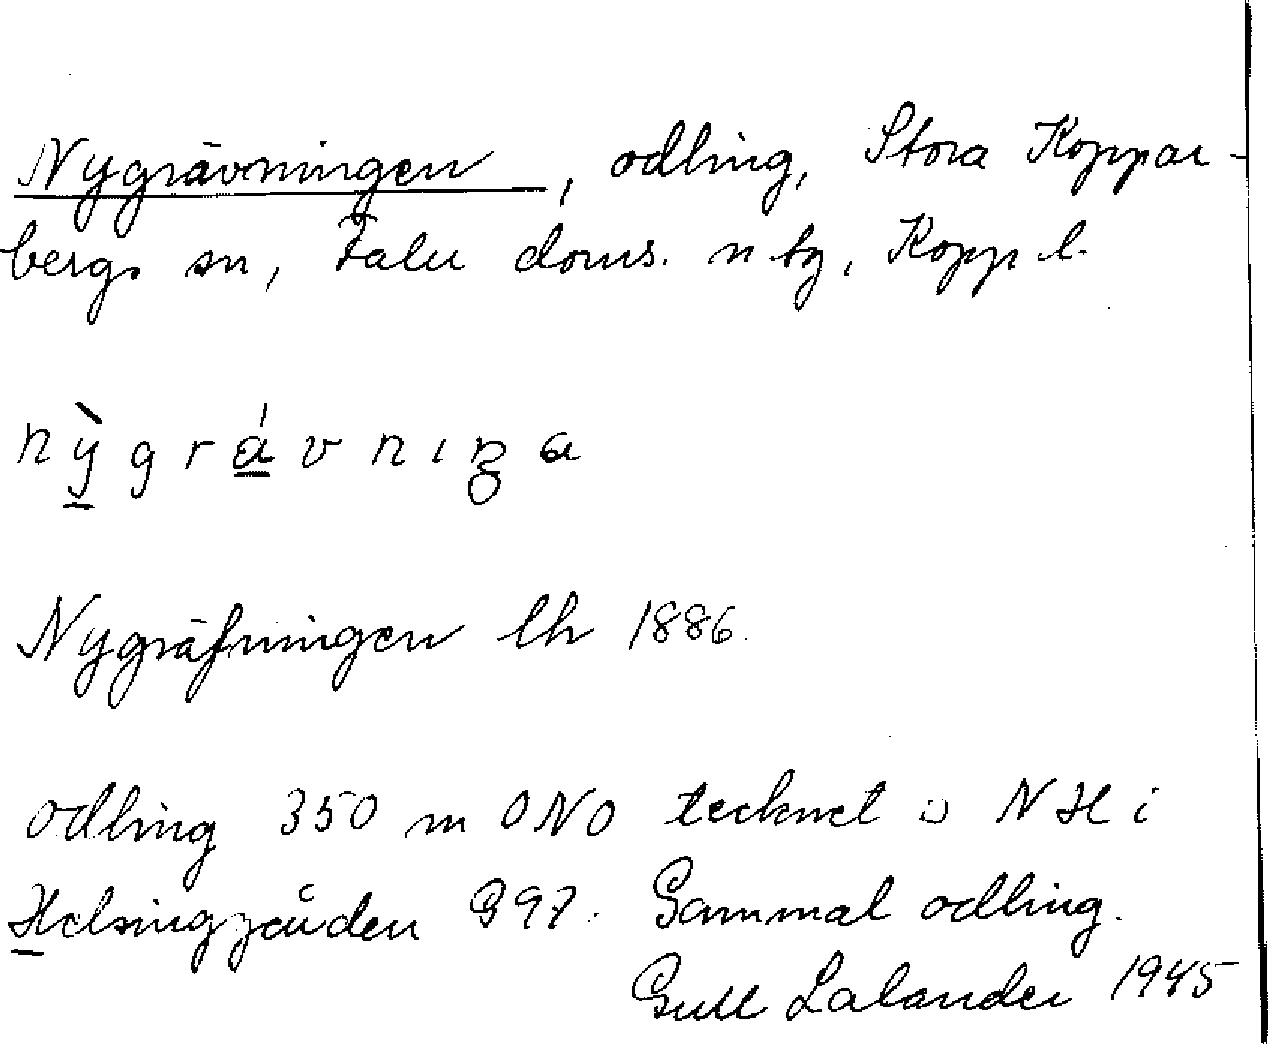 Nygrävningen, odling, Stora Koppar-
bergs sn, Falu doms. n tg, Kopp l.
nỳgrávnıŋa
Nygräfningen lh 1886.
Odling 350 m ONO tecknet NH i
Helsinggården G 97. Gammal odling.
Gull Lalander 1945